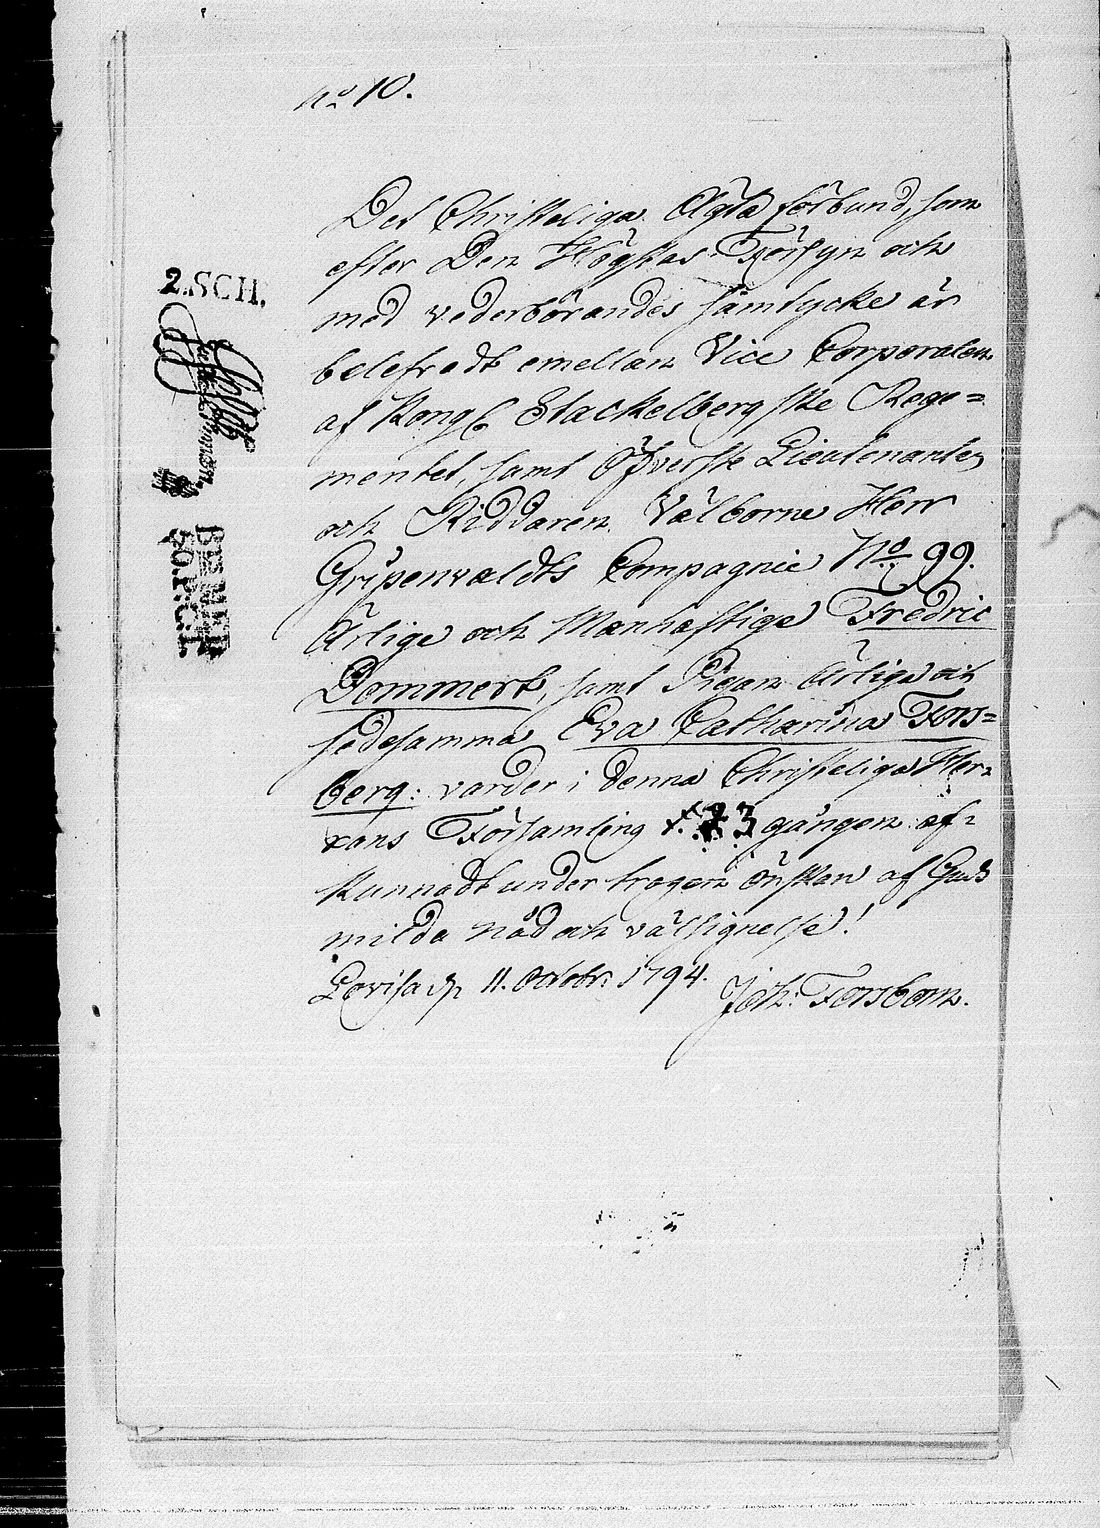 No 10.
Det Christeliga Ägta förbund, som
efter Den Högstas Försyn och
med vederbörandes samtycke är
belefvadt emellan Vice Corporalen
af Kongl Stackelbergske Rege=
mentet, samt Öfverste Lieutenanten
och Riddaren Välborne Herr
Gripenvaldts Compagnie No 99.
Ärlige och Manhaftige Fredric
Dommert, samt Pigan Ärliga och
sedesamma Eva Catharina Fors=
berg: varder i denna Christeliga Her=
rans Församling 3 gången af=
kunnadt under trogen önskan af Guds
milda nåd och välsignelse!
Lovisa d. 11. Octobr. 1794. Joh: Forsbom.
2.SCH.